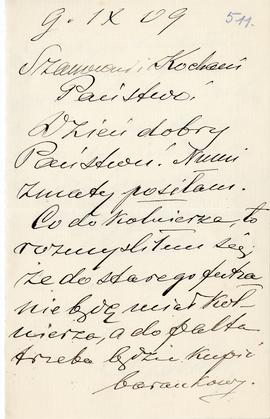 9. IX 09
511.
Szanowni i Kochani
Państwo!
Dzień dobry
Państwu!
posiłam.
Co do kołnierza, to
rozmyśliłem się,
że do starego futra
nie będę miał koł-
nierza, a do palta
trzeba będzie kupić
barankowy.